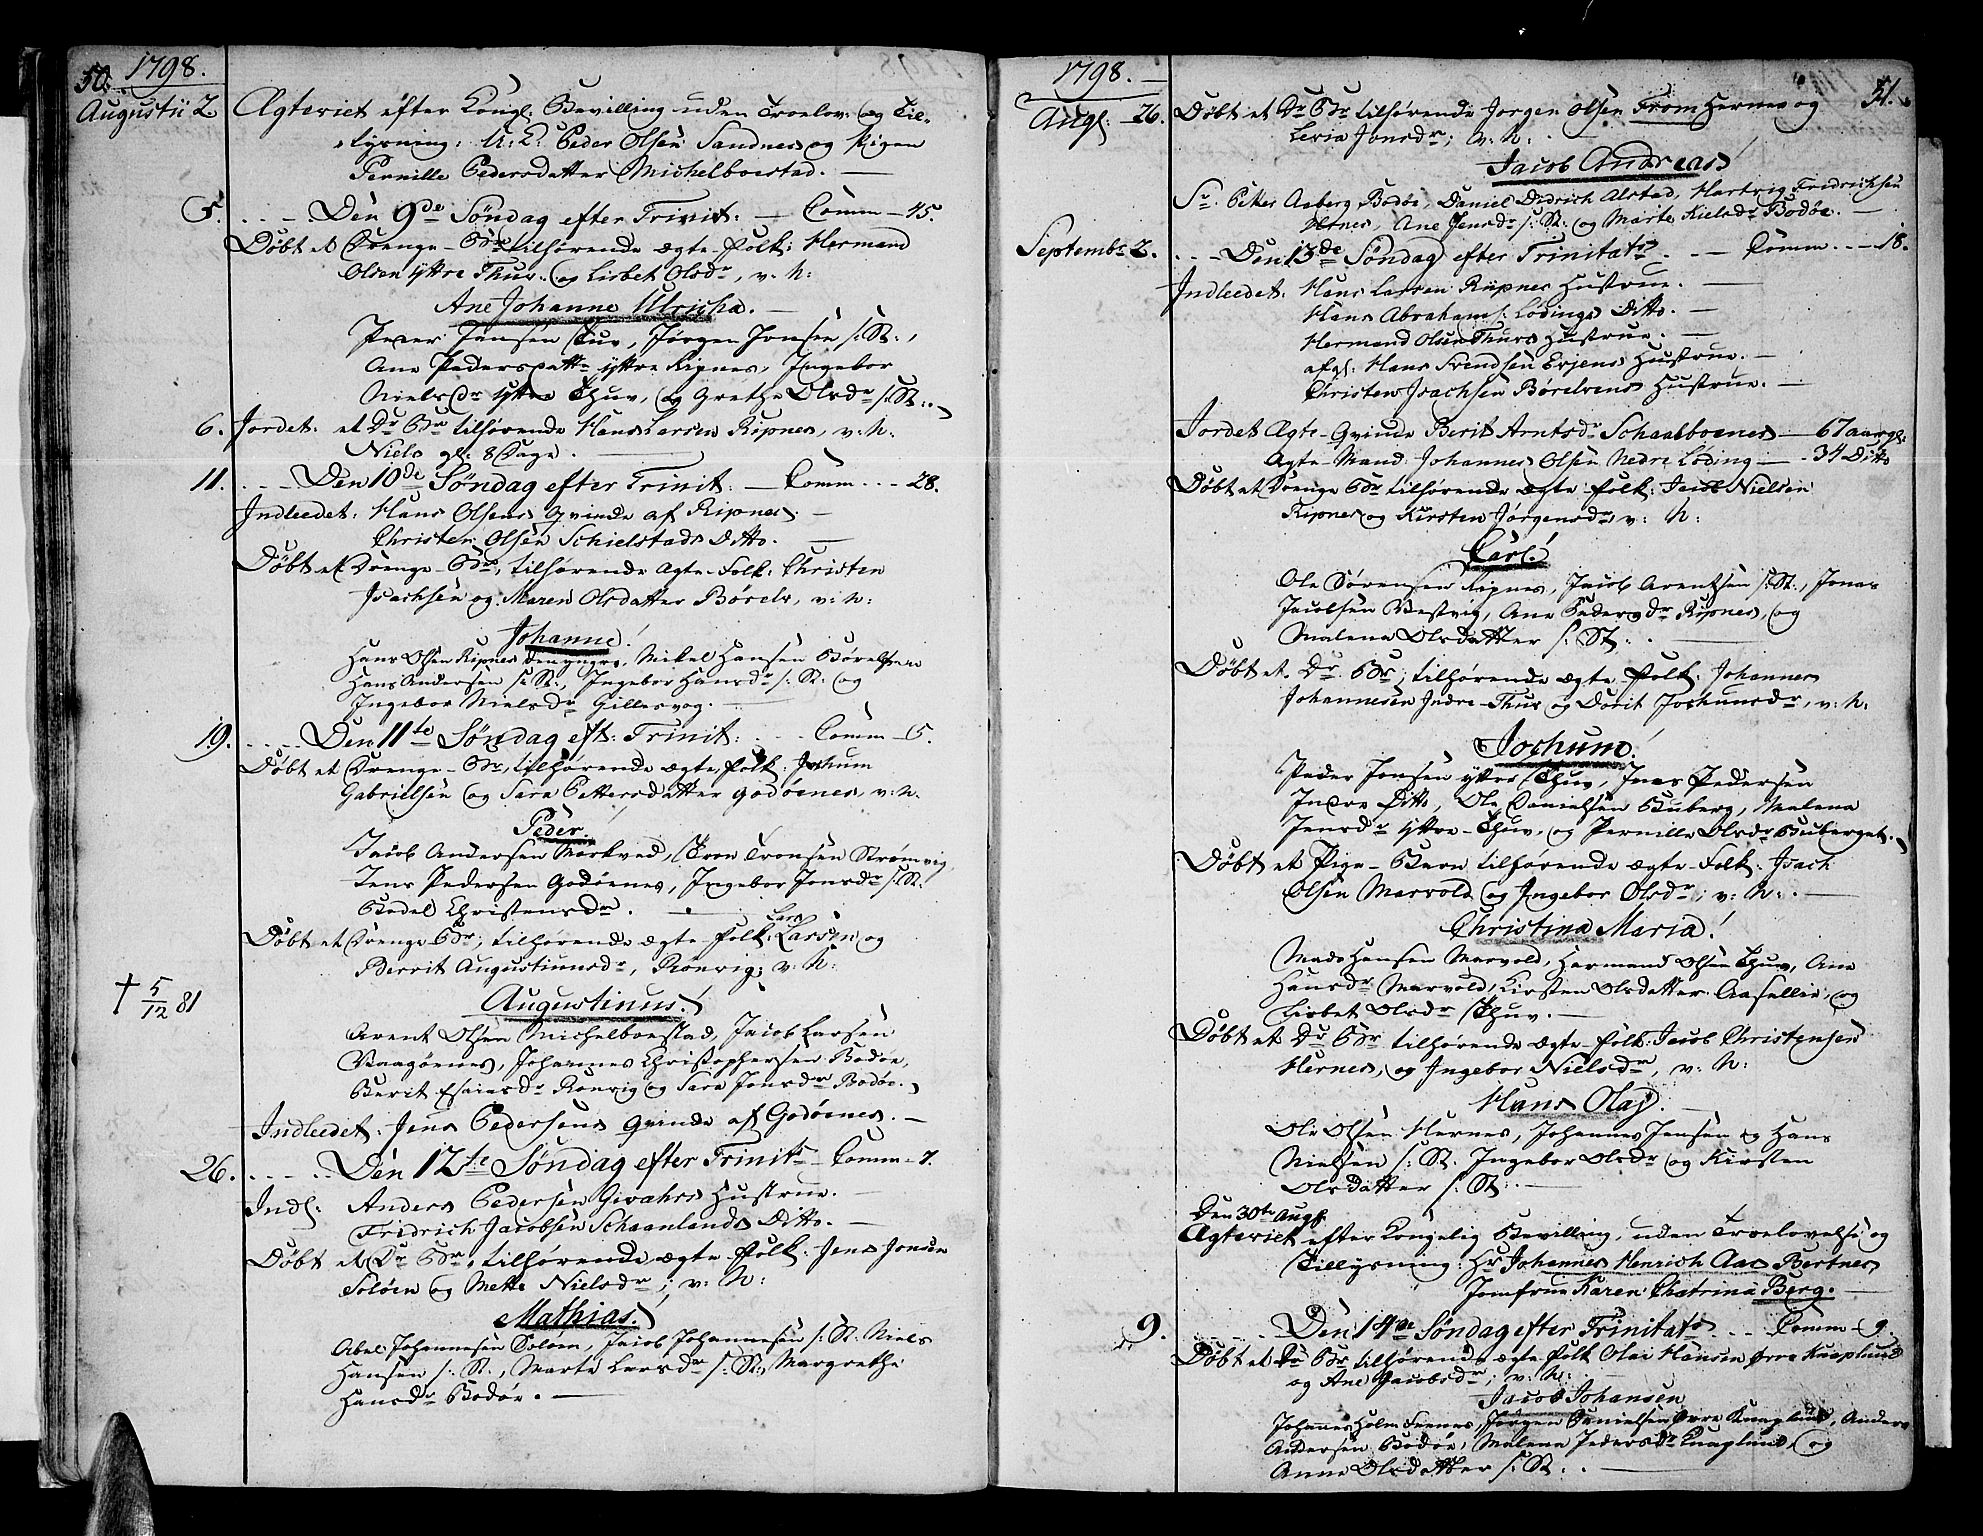 50. 1798.
Augustii 2. Ægteviet efter Kongl: Bevilling uden Troelov: og Til-
lysning: U: K: Peder Olsen Sandnes og Pigen
Pernille Pedersdatter Michelboestad.
5. Den 9de Søndag efter Trinit: Comm 45.
Døbt et Drenge-Bn tilhørende ægte-Folk: Hermand
Olsen yttre Thuv. og Lisbet Olsdr, v. N:
Ane Johanne Ulricha.
Peder Jensen Tuv, Jørgen Jonsen s: St:,
Ane Pedersdattr yttre Ripnes, Ingebor
Nielsdr yttre Thuv, og Grethe Olsdr s: St:
6. Jordet: et Dr Bn tilhørende Hans Larsen Ripnes, v: N:
Niels gl: 8 Dage.
11. Den 10de Søndag efter Trinit: Comm 28.
Indleedet: Hans Olsens Qvinde af Ripnes.
Christen Olsen Schielstads Ditto.
Døbt et Drenge-Bn, tilhørende Ægte-Folk: Christen
Isachsen og Maren Olsdatter Børelv, v: N:
Johanne!
Hans Olsen Ripnes den yngre, Mikel Hansen Børelven
Hans Andersen s: St:, Ingebor Hansdr s: St: og
Ingebor Nielsdr Gillesvog.
19. Den 11te Søndag eft: Trinit: Comm 5.
Døbt et Drenge-Bn, tilhørende ægte Folk: Jochum
Gabrielsen og Sara Pettersdatter Godøenes, v: N.
Peder.
Jacob Andersen Morkved, Tron Tronsen Strømvig
Jens Pedersen Godøenes, Ingebor Jonsdr s: St.
Bodel Christensdr.
Døbt et Drenge Bn, tilhørende ægte-Folk: Lars Larsen og
Berrit Augustinusdr, Rønvig; v: N:
† 5/12 81
Augustinus!
Arent Olsen Michelboestad, Jacob Larsen
Vaagøenes, Johannes Christophersen Bodøe,
Berit Esaiasdr Rønvig og Sara Jonsdr Bodøe.
Indleedet: Jens Pedersens Qvinde af Godøenes.
26. Den 12te Søndag efter Trinits Comm 7.
Indl: Anders Pedersen Givahrs Hustrue.
Fridrich Jacobsen Schaanlands Ditto.
Døbt et Dr Bn, tilhørende ægte-Folk: Jens Jonsen
Soløen og Mette Nielsdr; v: N:
Mathias!
Abel Johannesen Soløen, Jacob Johannesen s: St: Niels
Hansen s: St:, Marte Larsdr s: St:, Margrethe
Hansdr Bodøe.
1798. 51.
Augl: 26. Døbt et Dr Bn tilhørende Jørgen Olsen From Hernes og
Jonsdr; v: N:
Jacob Andreas!
Sr Petter Aaberg Bodøe, Daniel Didrich Alstad, Hartvig Fridrichsen
Hernes, Ane Jensdr s: St: og Marte Nielsdr Bodøe.
Septembr 2. Den 13de Søndag efter Trinitats. Comm. 18.
Indleedet: Hans Larsen Ripnes Hustrue.
Hans Abraham s: Lødings Ditto.
Hermand Olsen Thuvs Hustrue.
afgl: Hans Svendsen Hustrue.
Christen Isachsen Børelvens Hustrue.
Jordet Ægte-Qvinde Berit Arntsdr Schaalboenes 67 aar gl:
Ægte-Mand: Johannes Olsen Nedre Løding 34 Ditto
Døbt et Drenge Bn tilhørende ægte-Folk: Jacob Nielsen
Ripnes og Kirsten Jørgensdr, v: N:
Carl!
Ole Sørensen Ripnes, Jacob Arentsen s: St:, Jonas
Jacobsen Vestvig, Ane Pedersdr Ripnes, og
Malena Olsdatter s: St:
Døbt et Dr Bn; tilhørende ægte-Folk: Johannes
Johannesen Indre-Thuv og Dorit Jochumsdr, v: N:
Jochum!
Peder Jensen yttre Thuv, Jens Pedersen
Indre Ditto, Ole Danielsen Buberg, Malena
Jensdr yttre-Thuv, og Pernille Olsdr Buberget.
Døbt et Pige-Barn tilhørende ægte-Folk: Isach
Olsen Marvold og Ingebor Olsdr; v: N:
Christina Maria!
Mads Hansen Marvold, Hermand Olsen Thuv, Ane
Hansdr Marvold, Kirsten Olsdatter Aasellie, og
Lisbet Olsdr Thuv.
Døbt et Dr Bn tilhørende ægte-Folk: Jacob Christensen
Hernes, og Ingebor Nielsdr, v: N:
Hans Olaj.
Ole Olsen Hernes, Johannes Jensen og Hans
Nielsen s: St. Ingebor Olsdr og Kirsten
Olsdatter s: St:
Den 30te Augl:
Ægteviet efter Kongelig Bevilling, uden Troelovelse og
Tillysning: Hr Johannes Henrich Aas Bertnes
Jomfrue Karen Chatrina Berg.
9. Den 14de Søndag efter Trinitats. Comm 9.
Døbt et Dr Bn tilhørende ægte Folk Olai Hansen øvre Knaplund
og Ane Jacobsdr; v: N:
Jacob Johansen
Johannes Holm Fernes, Jørgen Danielsen øvre Knaplund, Anders
Andersen Bodøe, Malena Pedersdr Knaplund, og
Anne Olsdatter s: St: